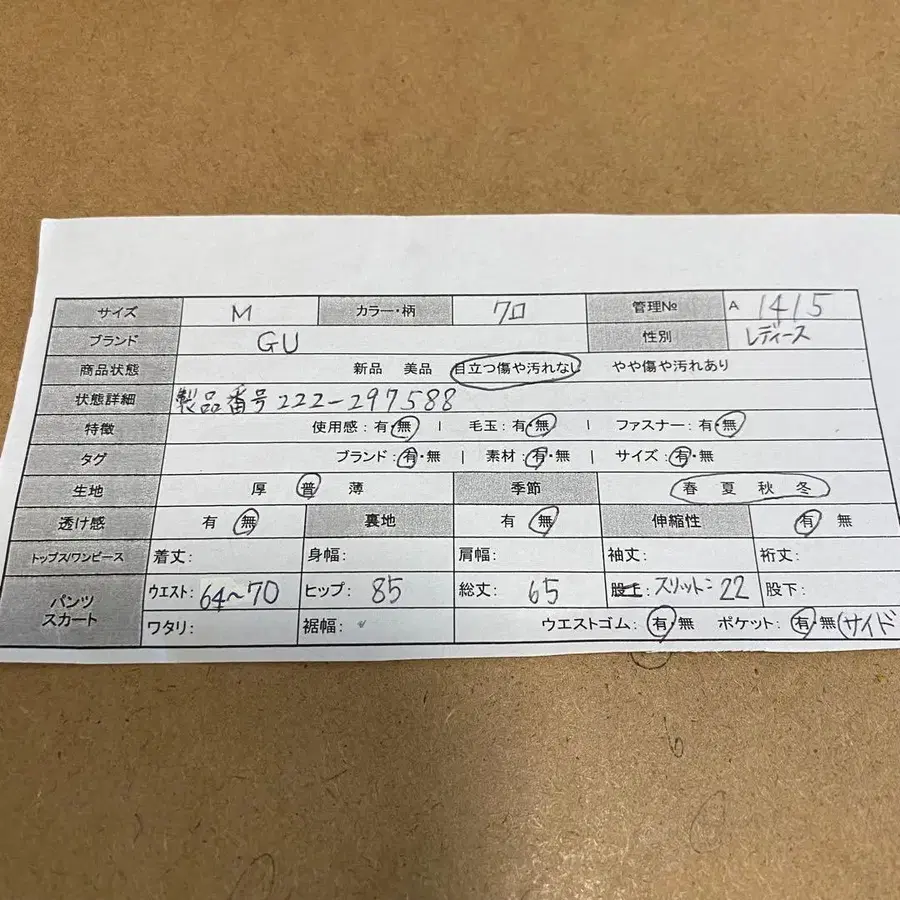 サイズ M カラー・柄 クロ 管理№ A 1415
ブランド GU 性別 レディース
商品状態 新品 美品 目立つ傷や汚れなし やや傷や汚れあり
状態詳細 製品番号222-297588
特徴 使用感:有・無 | 毛玉:有・無 | ファスナー:有・無
タグ ブランド:有・無 | 素材:有・無 | サイズ:有・無
生地 厚 普 薄 季節 春 夏 秋 冬
透け感 有 無 裏地 有 無 伸縮性 有 無
トップス/ワンピース 着丈: 身幅: 肩幅: 袖丈: 裄丈:
パンツ スカート ウエスト: 64~70 ヒップ: 85 総丈: 65 股上: スリット: 22 股下:
ワタリ: 裾幅: ウエストゴム:有・無 ポケット:有・無(サイド